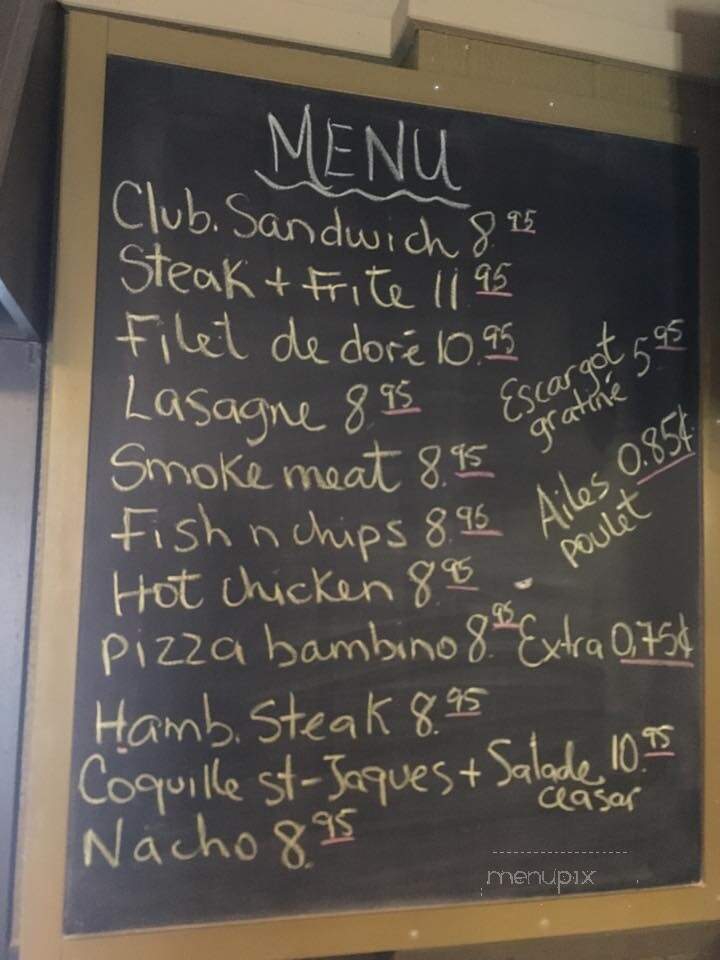 MENU
Club. Sandwich 8.95
Steak + Frite 11.95
Filet de doré 10.95
Lasagne 8.95
Escargot 5.95
gratiné
Smoke meat 8.95
Ailes 0.85¢
poulet
Fish n chips 8.95
Hot chicken 8.95
Pizza bambino 8.95 Extra 0,75¢
Hamb. Steak 8.95
Coquille st-Jaques + Salade 10.95
ceasar
Nacho 8.95
menupix